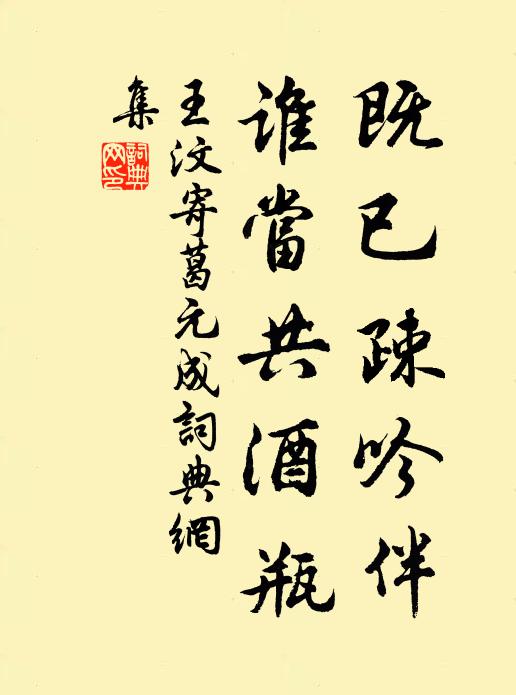 既已疎吟伴
誰當共酒瓶
王汶寄葛元成詞典網
集
詞典
网印